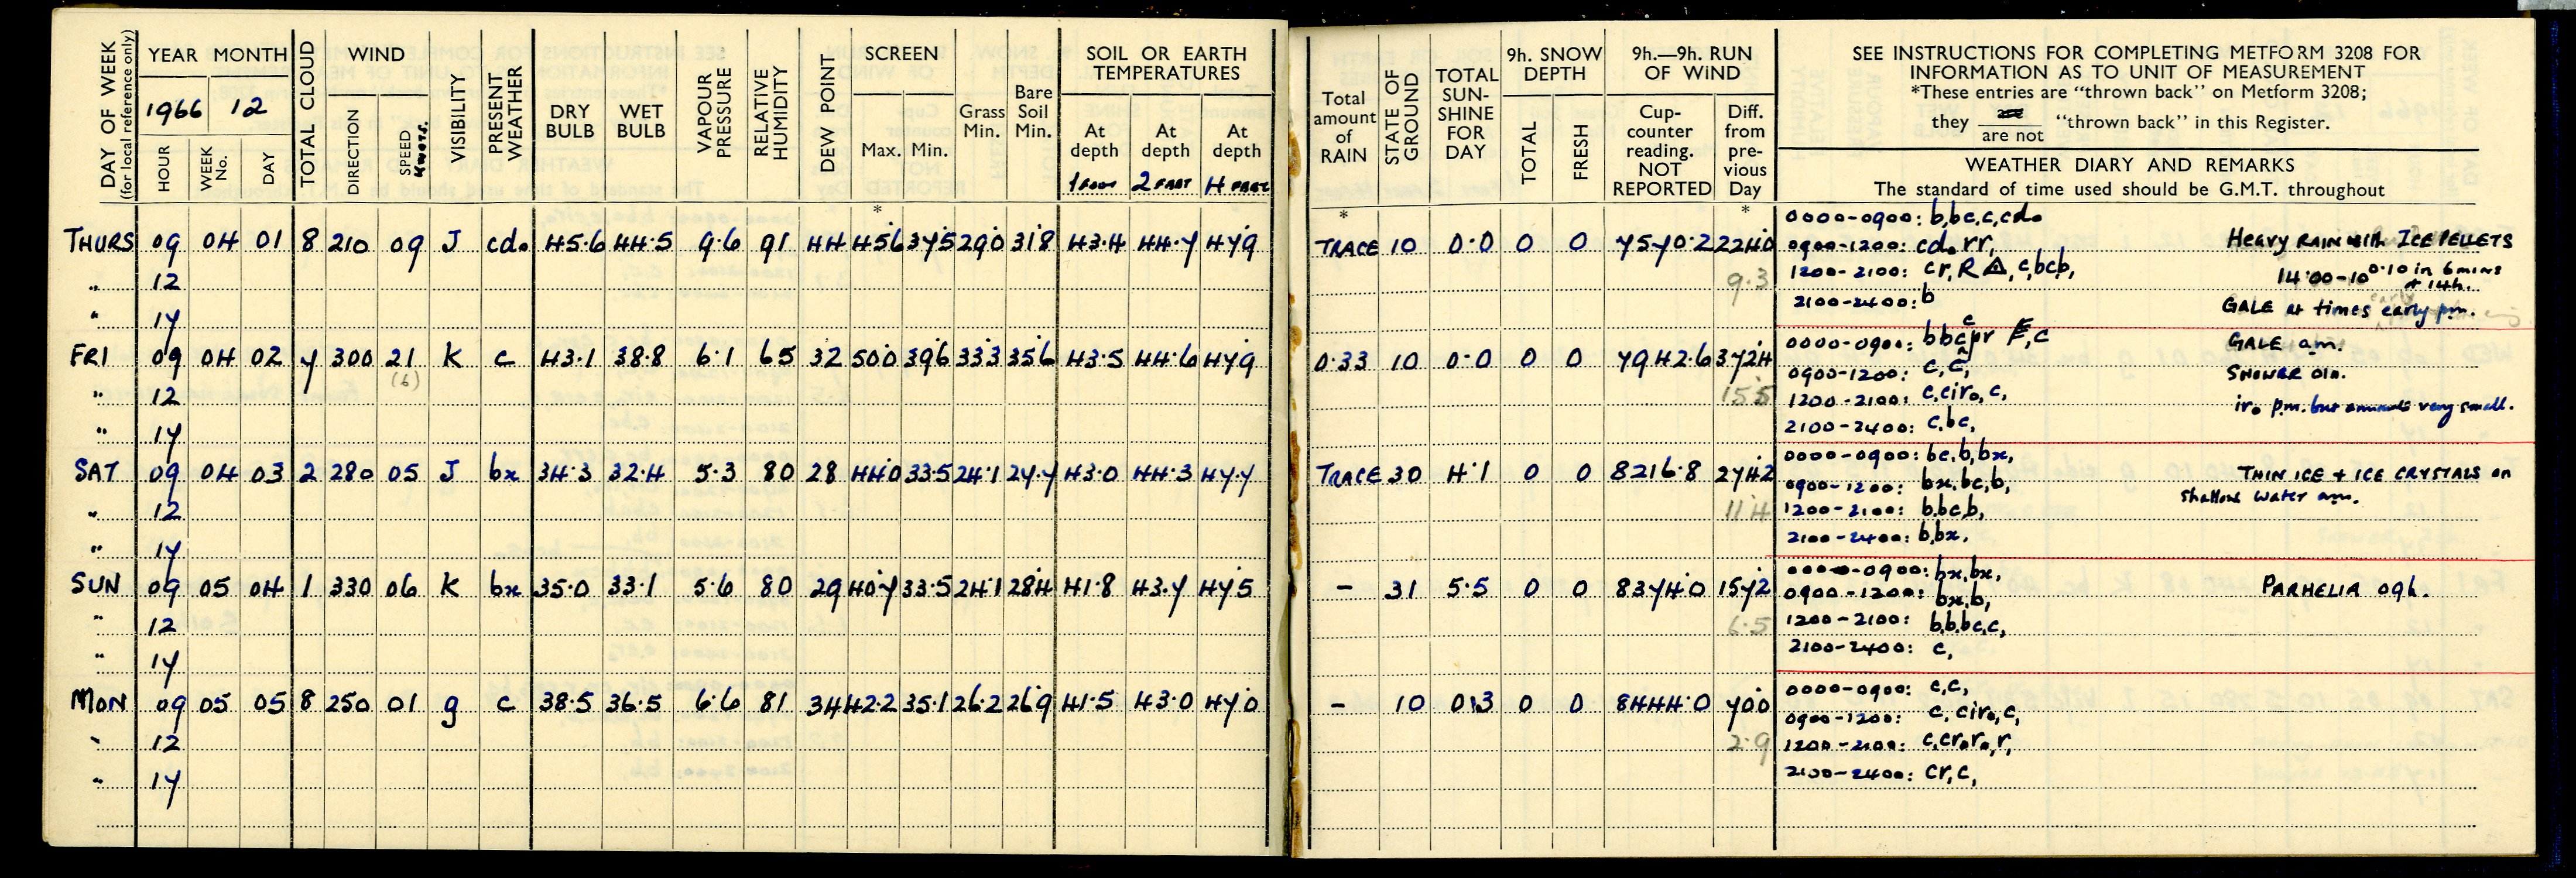 DAY OF WEEK (for local reference only)
YEAR MONTH
1966 12
HOUR WEEK No. DAY
TOTAL CLOUD
WIND
DIRECTION SPEED KNOTS.
VISIBILITY
PRESENT WEATHER
DRY BULB
WET BULB
VAPOUR PRESSURE
RELATIVE HUMIDITY
DEW POINT
SCREEN
Max. Min.
Grass Min.
Bare Soil Min.
SOIL OR EARTH TEMPERATURES
At depth 1 FOOT
At depth 2 FEET
At depth 4 FEET
Total amount of RAIN
STATE OF GROUND
TOTAL SUN-SHINE FOR DAY
9h. SNOW DEPTH
TOTAL FRESH
9h.—9h. RUN OF WIND
Cup-counter reading. NOT REPORTED
Diff. from pre-vious Day
SEE INSTRUCTIONS FOR COMPLETING METFORM 3208 FOR
INFORMATION AS TO UNIT OF MEASUREMENT
*These entries are "thrown back" on Metform 3208;
they are not "thrown back" in this Register.
WEATHER DIARY AND REMARKS
The standard of time used should be G.M.T. throughout
* * *
THURS 09 04 01 8 210 09 J cd₀ 45.6 44.5 9.6 91 44 45.6 37.5 29.0 31.8 43.4 44.7 47.9 TRACE 10 0.0 0 0 7570.2 224.0
" 12 9.3
" 17
0000-0900: b,bc,c,cd₀
0900-1200: cd₀ rr,
1200-2100: cr, R △, c,bcb,
2100-2400: b
Heavy RAIN with ICE PELLETS
14.00-10 0.10 in 6 mins
GALE at times early p.m.
FRI 09 04 02 7 300 21 K c 43.1 38.8 6.1 65 32 50.0 39.6 33.3 35.6 43.5 44.6 47.9 0.33 10 0.0 0 0 7942.6 372.4
(6)
" 12 15.5
" 17
0000-0900:
0900-1200: c, c,
1200-2100: c,cir₀, c,
2100-2400: c,bc,
GALE a.m.
SHOWER 01h.
ir₀ p.m. but amounts very small.
SAT 09 04 03 2 280 05 J bx 34.3 32.4 5.3 80 28 44.0 33.5 24.1 27.7 43.0 44.3 47.7 TRACE 30 4.1 0 0 8216.8 274.2
" 12 11.4
" 17
0000-0900: bc,b,bx,
0900-1200: bx,bc,b,
1200-2100: b,bcb,
2100-2400: b,bx.
THIN ICE + ICE CRYSTALS on
shallow water a.m.
SUN 09 05 04 1 330 06 K bx 35.0 33.1 5.6 80 29 40.7 33.5 24.1 28.4 41.8 43.7 47.5 - 31 5.5 0 0 8374.0 157.2
" 12 6.5
" 17
0000-0900: bx,bx,
0900-1200: bx,b,
1200-2100: b,b,bc,c,
2100-2400: c,
PARHELIA 09h.
MON 09 05 05 8 250 01 g c 38.5 36.5 6.6 81 34 42.2 35.1 26.2 26.9 41.5 43.0 47.0 - 10 0.3 0 0 8444.0 70.0
" 12 2.9
" 17
0000-0900: c,c,
0900-1200: c, cir₀,c,
1200-2100: c,cr₀r₀,r,
2100-2400: cr,c,